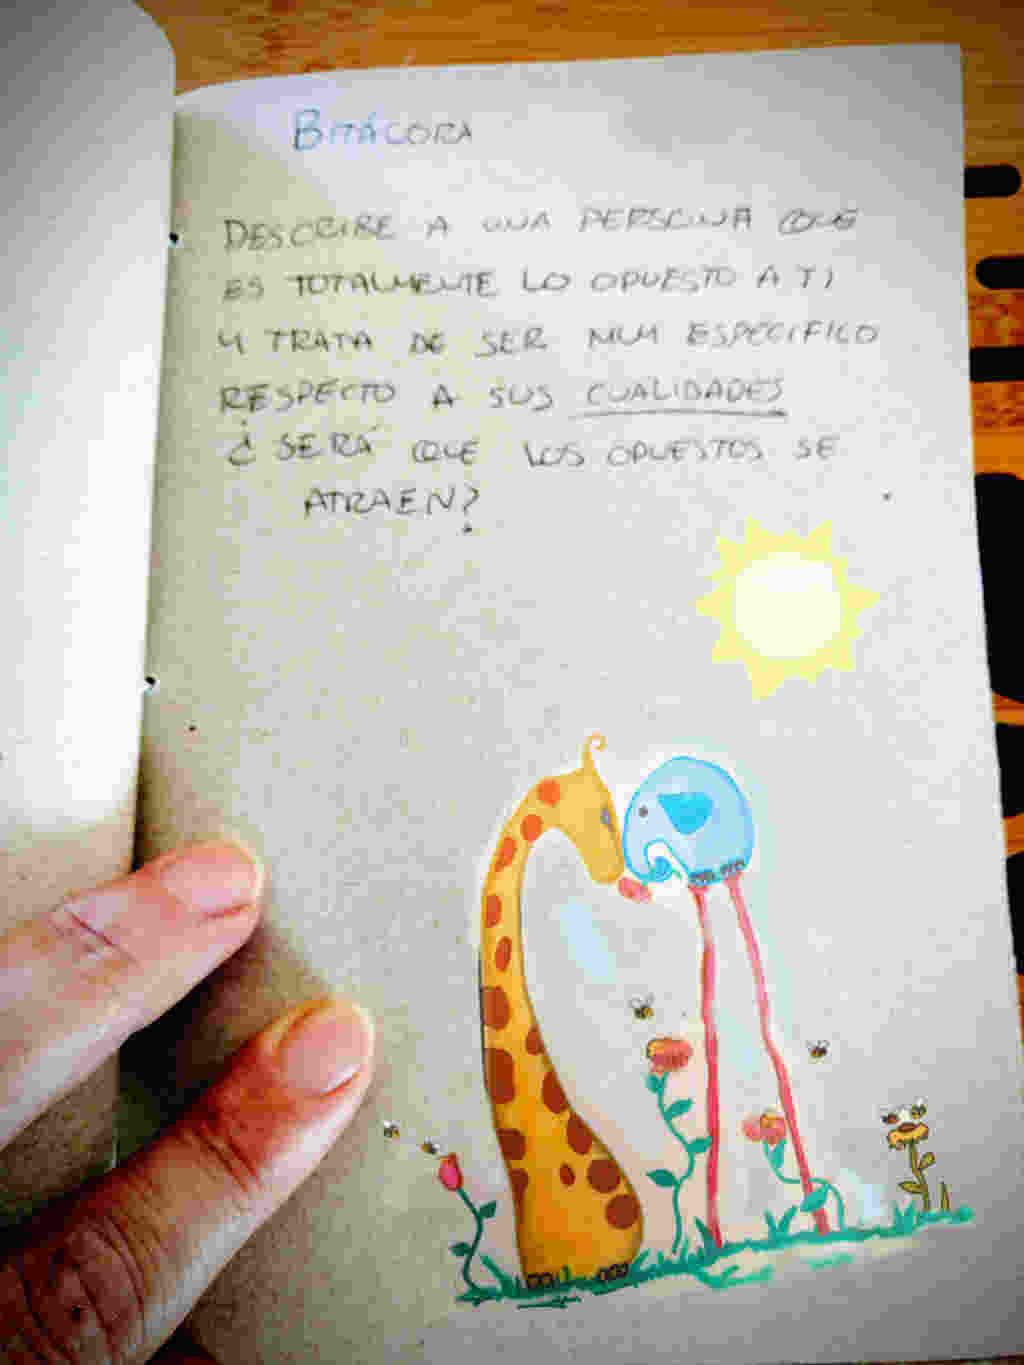 BITÁCORA
DESCRIBE A UNA PERSONA QUE
ES TOTALMENTE LO OPUESTO A TI
Y TRATA DE SER MUY ESPECIFICO
RESPECTO A SUS CUALIDADES
¿SERÁ QUE LOS OPUESTOS SE
ATRAEN?